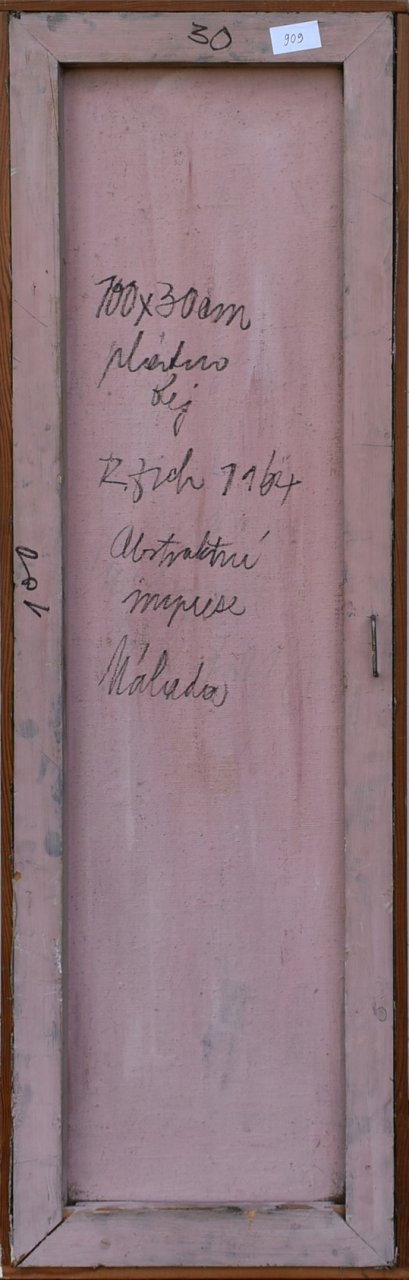 30
909
100x30cm
plátno
R. Fich 1964
Abstraktní
imprese
Nálada
100